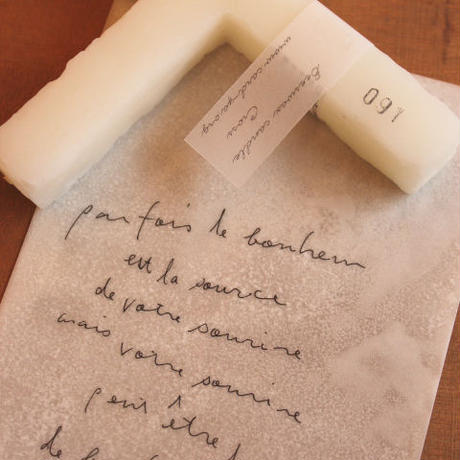 Beeswax candle
Cross
www.card-ya.org
091
parfois le bonheur
est la source
de votre sourire
mais votre sourire
peut être l
de